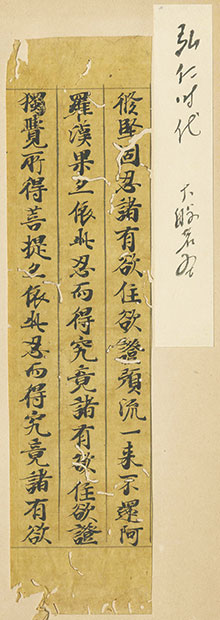 弘仁时代
大般若経
堅固忍諸有欲住欲證預流一来不還阿
羅漢果必依此忍而得究竟諸有欲住欲證
獨覺所得菩提必依此忍而得究竟諸有欲